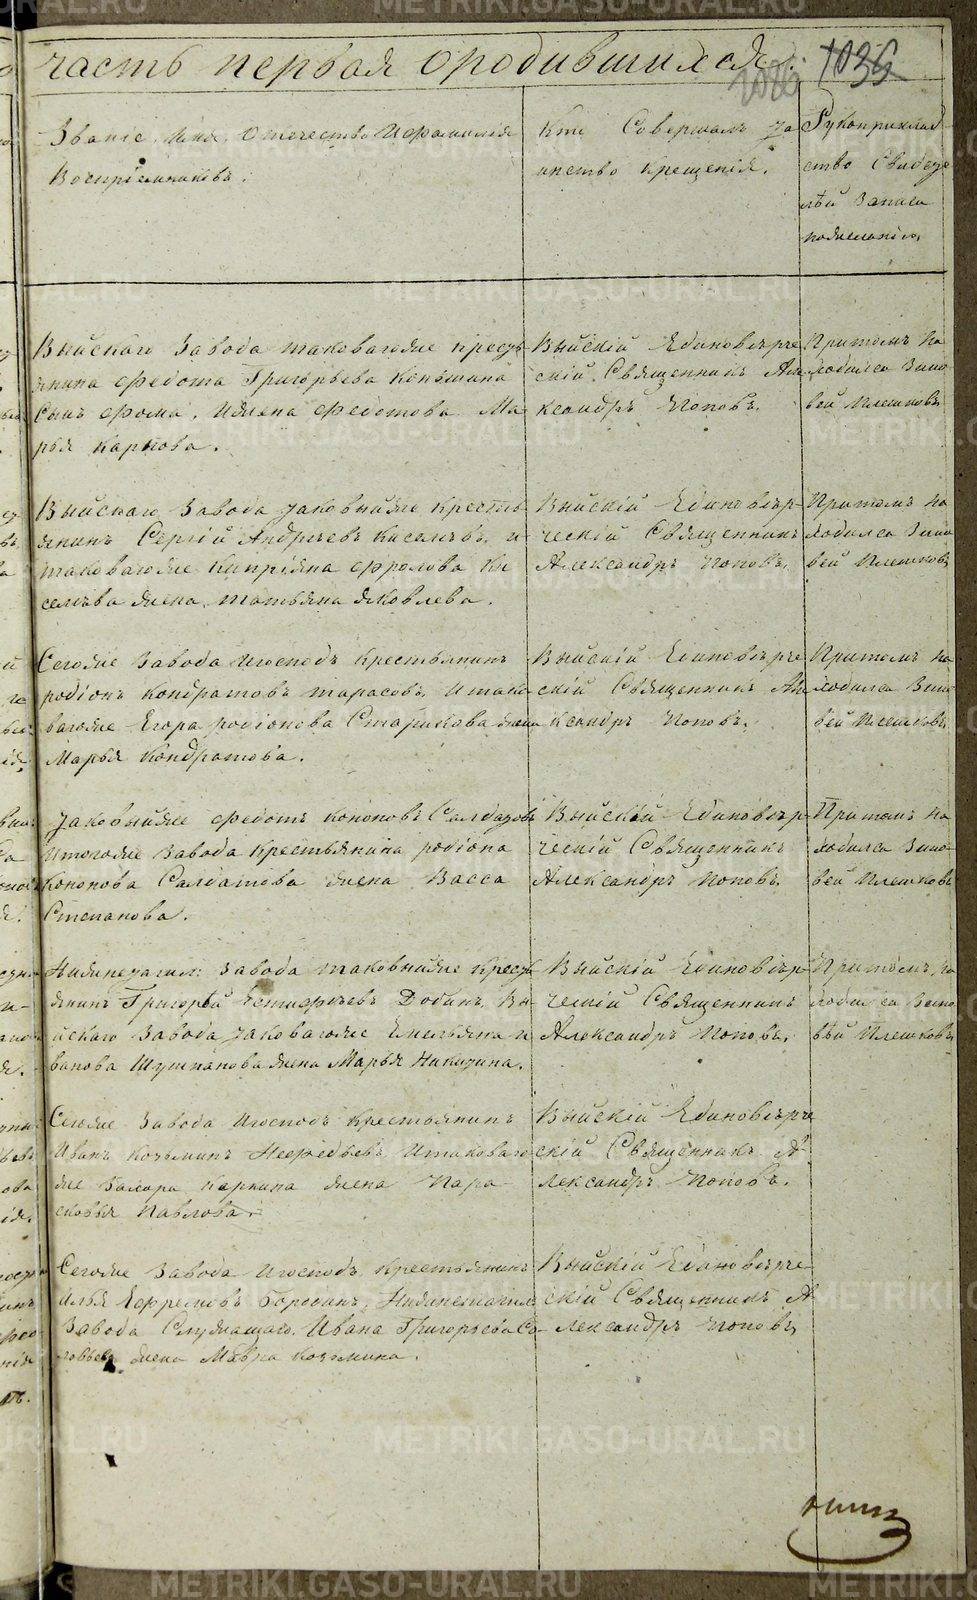 часть первая о родившихся.
1035
Званіе, Имя, Отечество И фамилія
Воспріемниковъ.
Кто Совершалъ та
инство крещенія.
Рукоприклад
ство Свидѣте
лей записи
по желанію
Выйскаго Завода таковагоже кресть
янина Федота Григорьева Коньшина
Сынъ Фома. Ижена Федотова Ма
рья Карпова.
Выйскій Единовѣрче
скій Священникъ Але
ксандръ Поповъ.
Притомъ на
ходился Зино
вей Плешковъ
Выйскаго Завода таковыйже кресть
янинъ Сергій Андреевъ Киселевъ, и
таковагоже Кипріяна Фролова Ки
селева жена Татьяна Яковлева.
Выйскій Единовѣр
ческій Священникъ
Александръ Поповъ.
Притомъ на
ходился Зино
вей Плешковъ
Сегоже Завода Игосподъ Крестьянинъ
родіонъ Кондратовъ тарасовъ, Итако
вагоже Егора родіонова Старикова жена
Марья Кондратова.
Выйскій Единовѣрче
скій Священникъ Але
ксандръ Поповъ.
Притомъ на
ходился Зино
вей Плешковъ
Таковыйже Федотъ Кононовъ Салдатовъ
Итогоже Завода Крестьянина родіона
Кононова Салдатова жена Васса
Степанова.
Выйскій Единовѣр
ческій Священникъ
Александръ Поповъ.
Притомъ на
ходился Зино
вей Плешковъ
Нижнетагил: Завода таковыйже Кресть
янинъ Григорѣй Естифеевъ Додинъ, Вы
йскаго Завода таковагоже Емельяна и
ванова Шушпанова жена Марья Никитина.
Выйскій Единовѣр
ческій Священникъ
Александръ Поповъ.
Притомъ на
ходился Зино
вѣй Плешковъ
Сегоже Завода Игосподъ Крестьянинъ
Иванъ Козьминъ Итаковаго
же карпина жена Пара
сковья Павлова.
Выйскій Единовѣрче
скій Священникъ А
лександръ Поповъ.
Сегоже Завода Игосподъ Крестьянинъ
илья Ефремовъ Бородинъ, Нижнетагил
Завода Служащаго Ивана Григорьева Со
ловьева жена Мавра Козмина.
Выйскій Единовѣрче
скій Священникъ А
лександръ Поповъ
METRIKI.GASO-URAL.RU